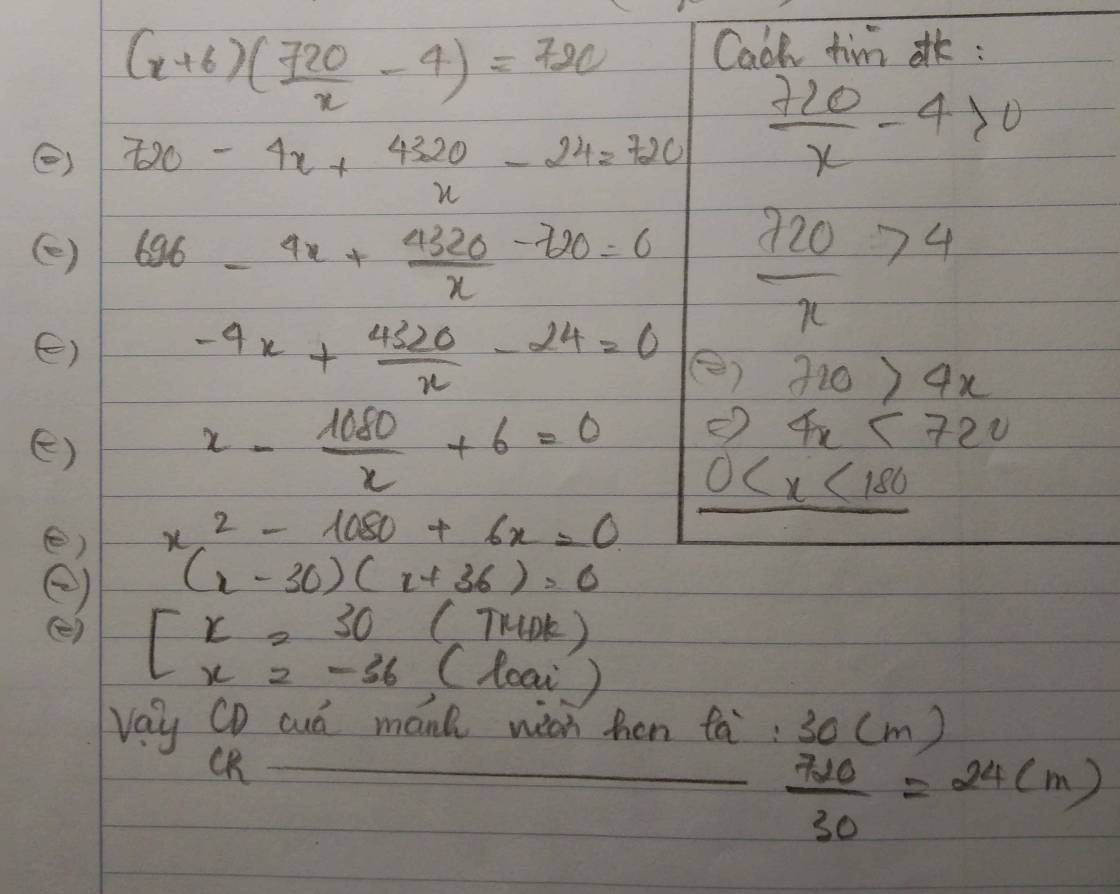 (x+6)(720/x - 4) = 720
⇔) 720 - 4x + 4320/x - 24 = 720
⇔) 696 - 4x + 4320/x - 720 = 0
⇔) -4x + 4320/x - 24 = 0
⇔) x - 1080/x + 6 = 0
⇔) x² - 1080 + 6x = 0
⇔) (x - 30)(x + 36) = 0
⇔) [ x = 30 (TMĐK)
x = -36 (loại)
Vậy CD của mảnh vườn hcn là : 30 (m)
CR ——— 720/30 = 24 (m)
Cách tìm đk :
720/x - 4 > 0
720/x > 4
⇔) 720 > 4x
⇔) 4x < 720
0 < x < 180